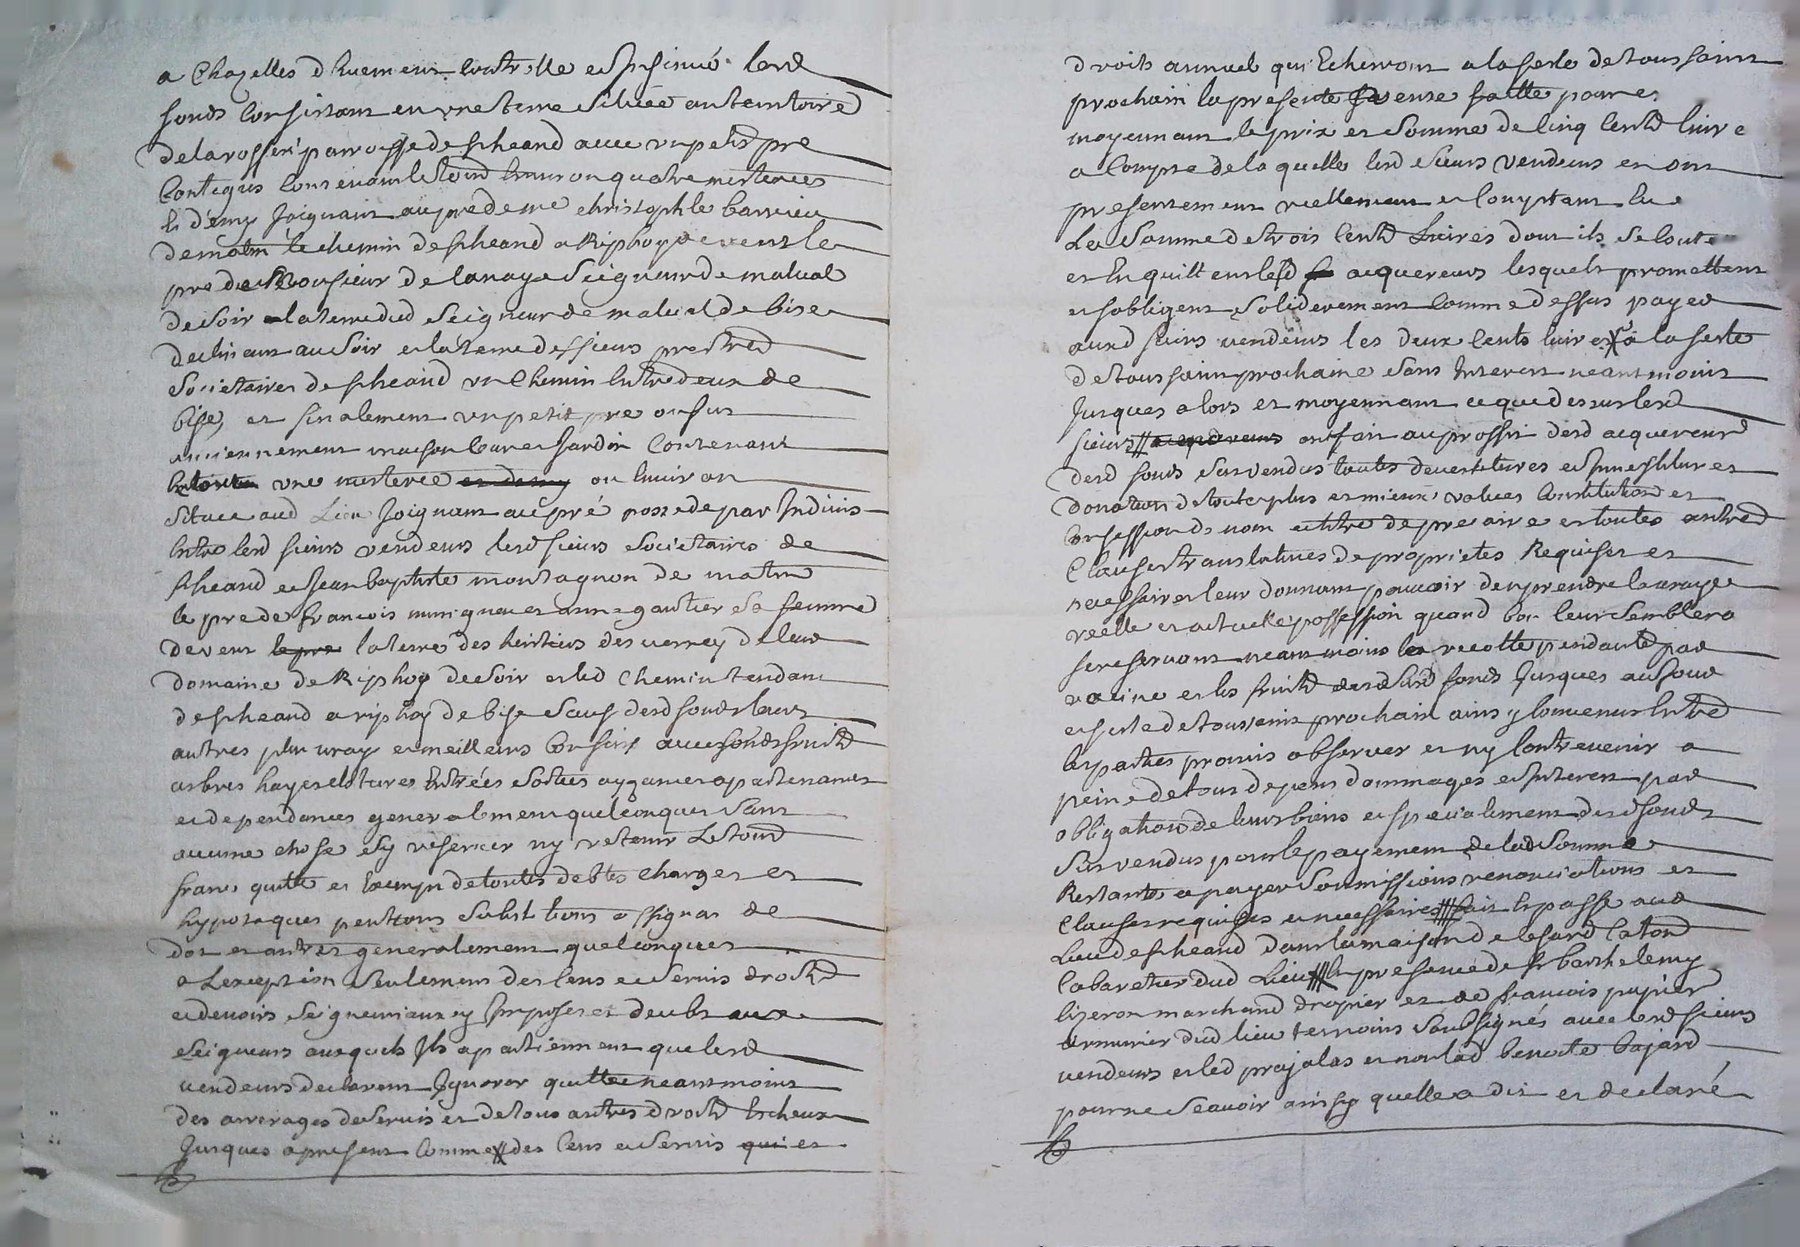 a Chazelles d huement controlle et Insinué lesd
fonds Consistant en une terre scituée au territoire
de la rosserÿ parroisse de st heand avec un petit pre
Contigus Contenant le tout Environ quatre mesterées
Et demy Joignant au pre de me christophle barrieu
de matin le chemin de st heand a Riphoy de vent le
pre de Monsieur de lanaye Seigneur de malval
de soir la terre dud Seigneur de malval de bise
declinant au soir et la terre des sieurs prestres
Societaires de st heand un Chemin Entre deux de
bise, et finalement un petit pre ou fut
anciennement maison Cour et Jardin Contenant
une mesterée et demy ou Environ
Scituee aud Lieu Joignant au pré possedé par Indivis
Entre lesd sieurs vendeurs lesd sieurs Societaires de
st heand et Jean baptiste montagnon de matin
le pre de françois et anne gautier sa femme
de vent le pre la terre des heritiers des verney de leur
domaine de Riphoy de soir et led Chemin tendant
de st heand a riphoy de bise sauf desd fonds leurs
autres plus vray et meilleurs Confins avec fonds fruits
arbres hayes clotures Entrées sorties ayzances apartenances
et dependances generalement quelconques sans
aucune chose sy reserver ny retenir Le tout
franc quitte et Exempt de toutes debtes charges et
hypotaques pentions substitutions assignas de
dot et autres generalement quelconques
a Lexeption seulement des Cens et Servis droits
et devoirs seigneuriaux y Imposes et deubs aux
Seigneurs ausquels Ils apartiennent que lesd
vendeurs declarent Ignorer quitte neantmoins
des arrerages de servis et de tous autres droits Echeux
Jusques a present Comme des Cens et Servis qui et
droits annuel qui Echerront a la feste de tous saint
prochain la presente vense faitte pour et
moyennant le prix et somme de Cinq Cents livre
a Compte de la quelle lesd sieurs vendeurs en ont
presentement reellement et Comptant Eu
La Somme de trois Cents Livres dont ils se Contente
et En quittent lesd acquereurs lesquels promettent
et sobligent soliderement Comme dessus payer
ausd sieurs vendeurs les deux Cents livres a la feste
de tous saint prochaine sans Interest neantmoins
Jusques alors et moyennant ce que dessus lesd
sieurs ont fait au proffit desd acquereurs
desd fonds sus vendus toutes devestitures et Investitures
donation de toute plus et mieux values Constitution et
Confession de nom et titre de precaire et toutes autres
Clauses translatives de proprietes Requises et
necessaires leur donnant pouvoir den prendre la vraye
reelle et actuelle possession quand bon leur semblera
se reservant neantmoins la recolte pendante par
racine et les fruits desd fonds Jusques au jour
et feste de tous saint prochain ainsy Convenus Entre
les parties promis observer et ny Contrevenir a
peine de tous depens dommages et Interest par
obligation de leurs biens et specialement desd fonds
sus vendus pour le payement de lad Somme
Restante a payer Soumissions renonciations et
Clauses requises et necessaires fait Et passe aud
Lieu de st heand dans la maison de
Cabaretier dud Lieu En presence de sr barthelemy
lizeron marchand drapier et de françois pupier
armurier dud lieu temoins Soubsignés avec lesd sieurs
vendeurs et led prajalas et non lad benoite bajard
pour ne Scavoir ainsy quelle a dit et declaré